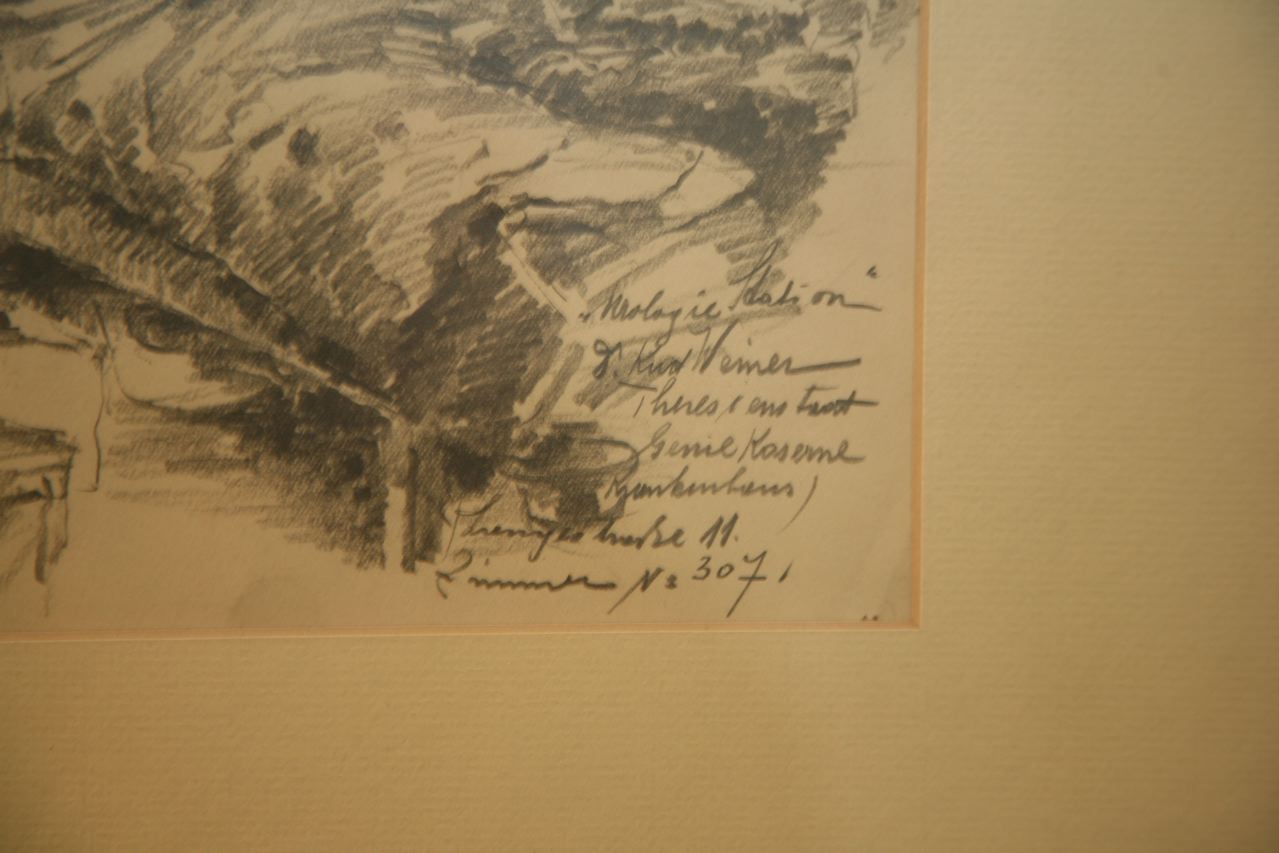 „Urologie Station“
Dr. Kurt Weiner
Theresienstadt
Genie Kaserne
Krankenhaus)
11.
Zimmer No 307,